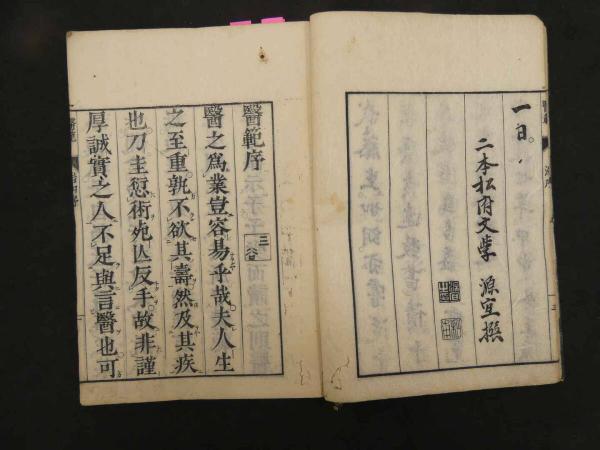 一日
二本松府文學 源宜撰
醫範序
三谷
醫之為業豈容易乎哉夫人生
之至重孰不欲其壽然及其疾
也刀圭愆術死亾反手故非謹
厚誠實之人不足與言醫也可